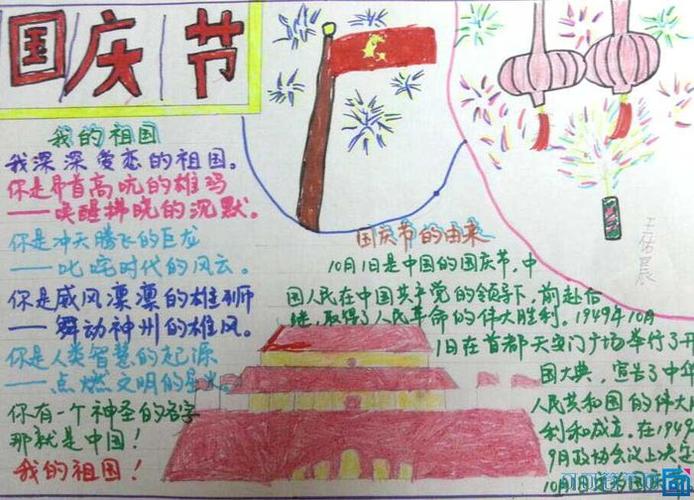 国庆节
我的祖国
我深深爱恋的祖国。
你是昂首高吭的雄鸡
——唤醒拂晓的沉默。
你是冲天腾飞的巨龙
——叱咤时代的风云。
你是威风凛凛的雄狮
——舞动神州的雄风。
你是人类智慧的起源
——点燃文明的星火。
你有一个神圣的名字
那就是中国！
我的祖国！
国庆节的由来
10月1日是中国的国庆节，中
国人民在中国共产党的领导下，前赴后
继，取得了人民革命的伟大胜利。1949年10月
1日在首都天安门广场举行了开
国大典，宣告了中华
人民共和国的伟大胜
利和成立。在1949
9月政协会议上决定
10月1日定为国庆
王佑晨